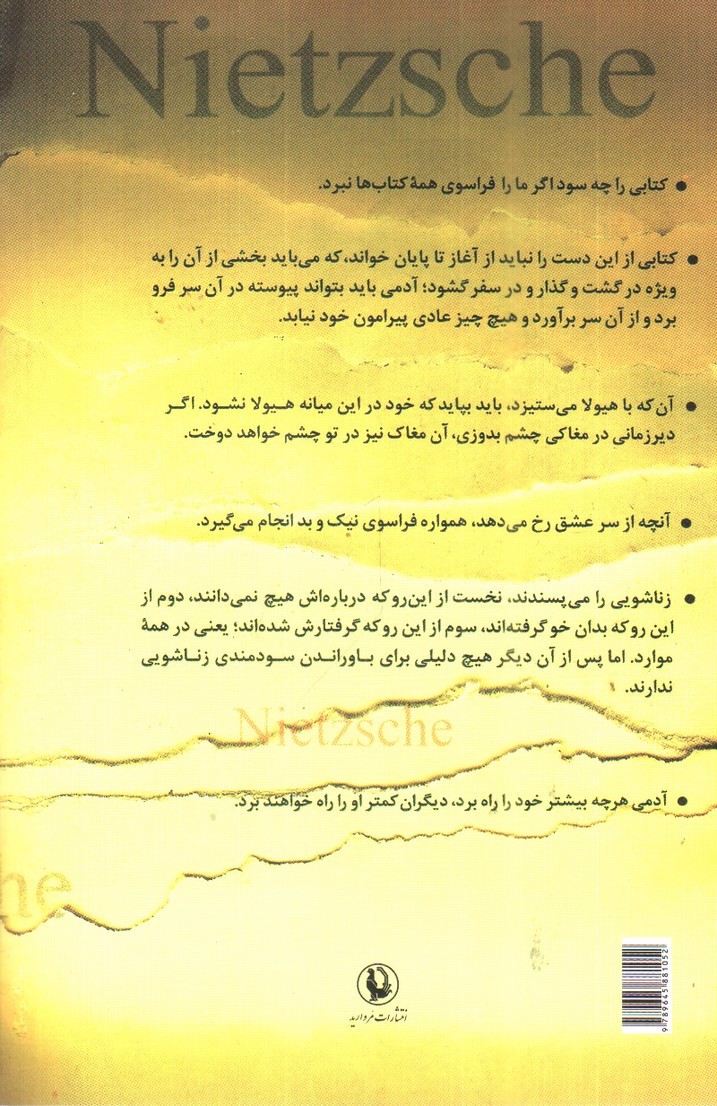 Nietzsche
● کتابی را چه سود اگر ما را فراسوی همهٔ کتاب‌ها نبرد.
● کتابی از این دست را نباید از آغاز تا پایان خواند، که می‌باید بخشی از آن را به
ویژه در گشت و گذار و در سفر گشود؛ آدمی باید بتواند پیوسته در آن سر فرو
برد و از آن سر برآورد و هیچ چیز عادی پیرامون خود نیابد.
● آن‌که با هیولا می‌ستیزد، باید بپاید که خود در این میانه هیولا نشود. اگر
دیرزمانی در مغاکی چشم بدوزی، آن مغاک نیز در تو چشم خواهد دوخت.
● آنچه از سر عشق رخ می‌دهد، همواره فراسوی نیک و بد انجام می‌گیرد.
● زناشویی را می‌پسندند، نخست از این‌رو که درباره‌اش هیچ نمی‌دانند، دوم از
این رو که بدان خو گرفته‌اند، سوم از این رو که گرفتارش شده‌اند؛ یعنی در همهٔ
موارد. اما پس از آن دیگر هیچ دلیلی برای باوراندن سودمندی زناشویی
ندارند.
Nietzsche
● آدمی هرچه بیشتر خود را راه برد، دیگران کمتر او را راه خواهند برد.
he
انتشارات مروارید
9 789645 881052